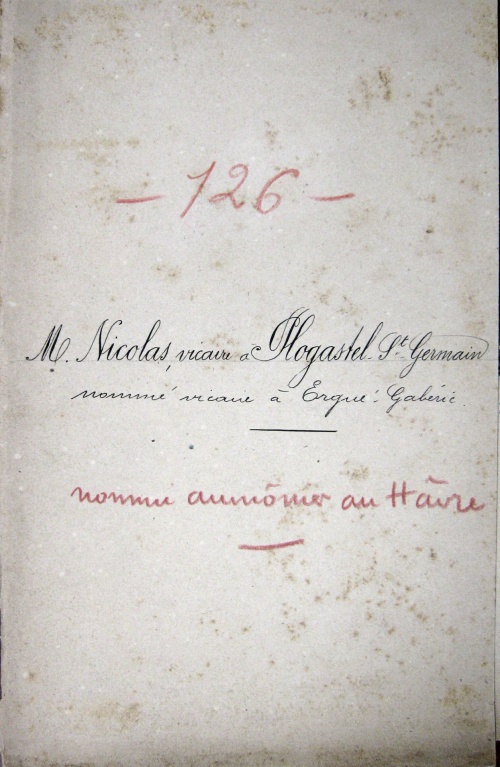 - 126 -
M. Nicolas, vicaire à Plogastel-St-Germain
nommé vicaire à Ergué-Gabéric
nommé aumônier au Hâvre